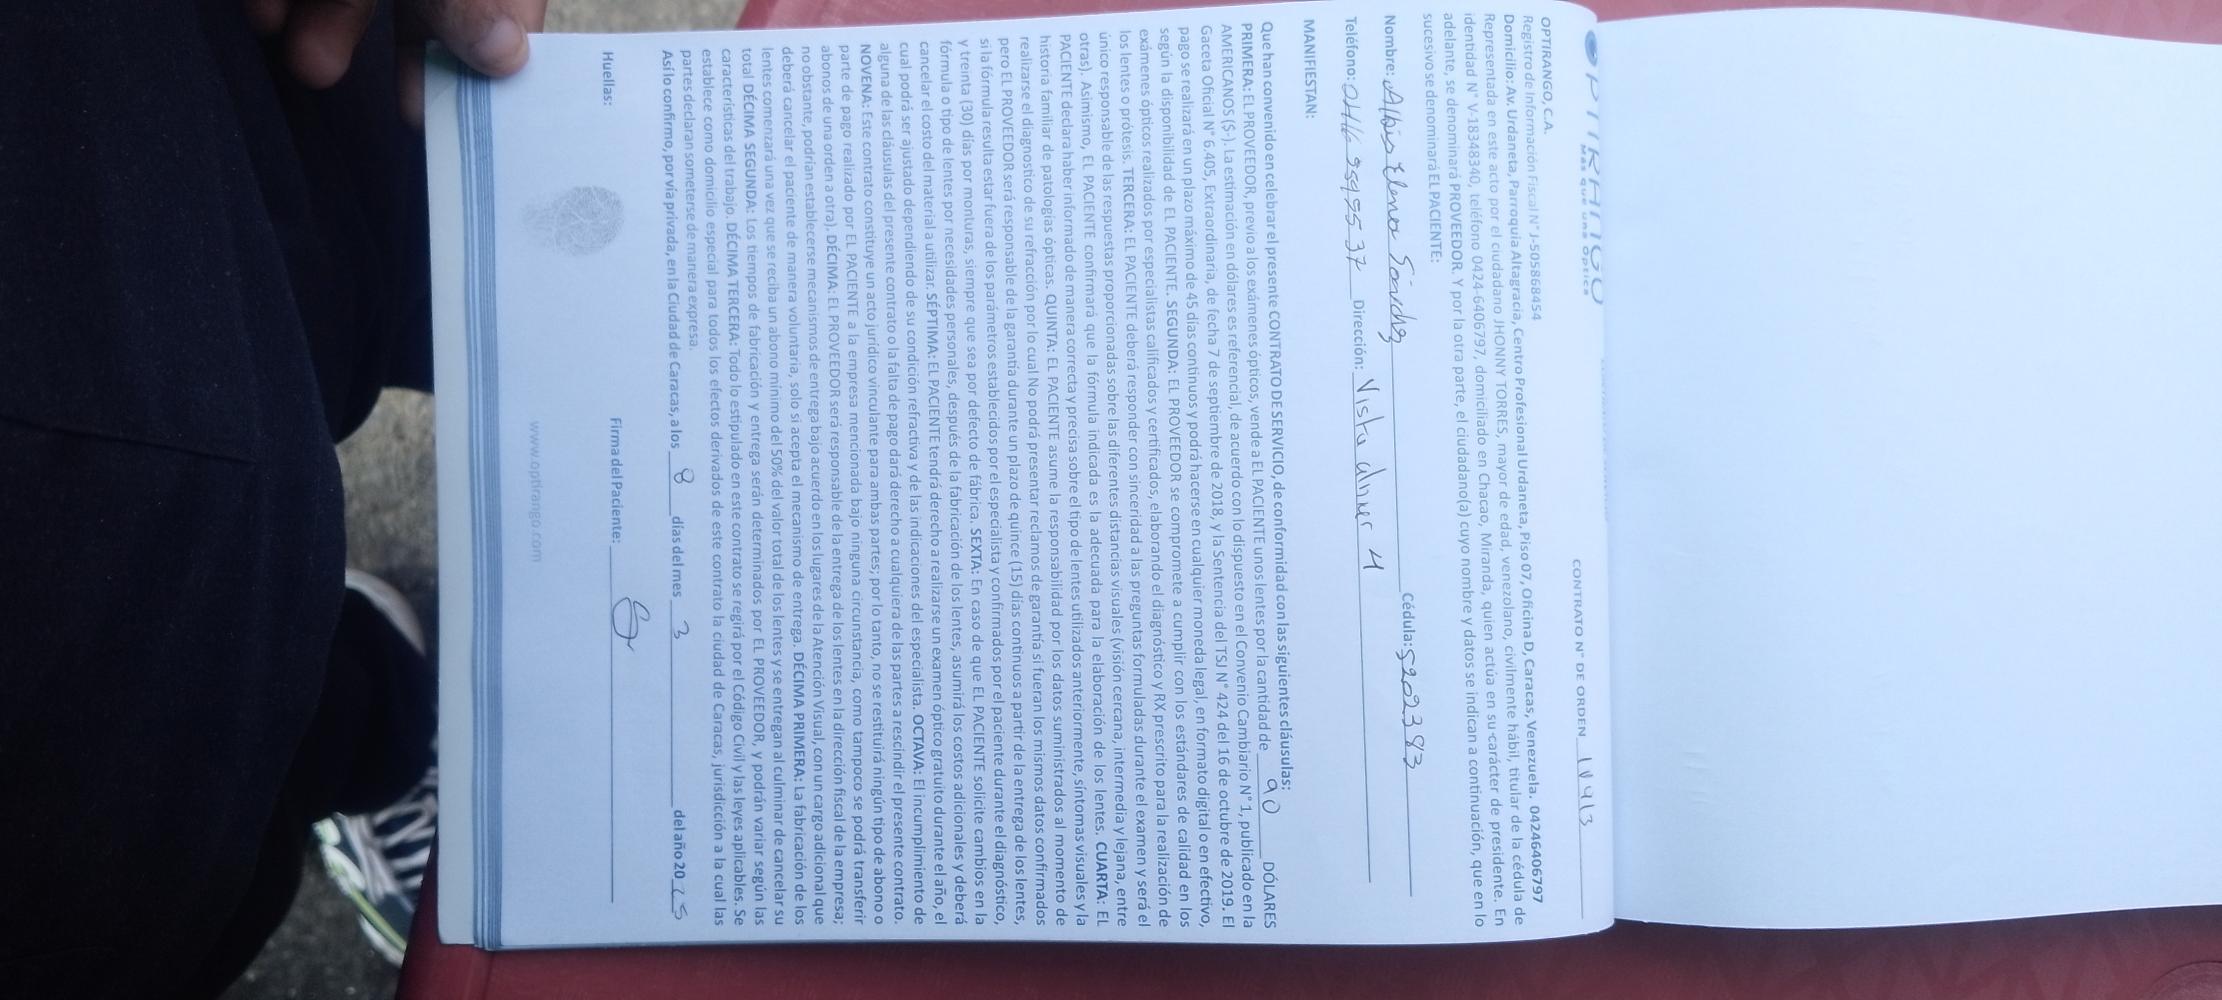 OPTIRANGO
Más que una Óptica
CONTRATO N° DE ORDEN
OPTIRANGO, C.A.
Registro de Información Fiscal N° J-505868454
Domicilio: Av. Urdaneta, Parroquia Altagracia, Centro Profesional Urdaneta, Piso 07, Oficina D, Caracas, Venezuela. 04246406797
Representada en este acto por el ciudadano JHONNY TORRES, mayor de edad, venezolano, civilmente hábil, titular de la cédula de
identidad N° V-18348340, teléfono 0424-6406797, domiciliado en Chacao, Miranda, quien actúa en su carácter de presidente. En
adelante, se denominará PROVEEDOR. Y por la otra parte, el ciudadano(a) cuyo nombre y datos se indican a continuación, que en lo
sucesivo se denominará EL PACIENTE:
Nombre: Albis Elena Sánchez Cédula: 5202383
Teléfono: 0416 9597537 Dirección: Vista 4
MANIFIESTAN:
Que han convenido en celebrar el presente CONTRATO DE SERVICIO, de conformidad con las siguientes cláusulas:
PRIMERA: EL PROVEEDOR, previo a los exámenes ópticos, vende a EL PACIENTE unos lentes por la cantidad de 90 DÓLARES
AMERICANOS ($-). La estimación en dólares es referencial, de acuerdo con lo dispuesto en el Convenio Cambiario N° 1, publicado en la
Gaceta Oficial N° 6.405, Extraordinaria, de fecha 7 de septiembre de 2018, y la Sentencia del TSJ N° 424 del 16 de octubre de 2019. El
pago se realizará en un plazo máximo de 45 días continuos y podrá hacerse en cualquier moneda legal, en formato digital o en efectivo,
según la disponibilidad de EL PACIENTE. SEGUNDA: EL PROVEEDOR se compromete a cumplir con los estándares de calidad en los
exámenes ópticos realizados por especialistas calificados y certificados, elaborando el diagnóstico y RX prescrito para la realización de
los lentes o prótesis. TERCERA: EL PACIENTE deberá responder con sinceridad a las preguntas formuladas durante el examen y será el
único responsable de las respuestas proporcionadas sobre las diferentes distancias visuales (visión cercana, intermedia y lejana, entre
otras). Asimismo, EL PACIENTE confirmará que la fórmula indicada es la adecuada para la elaboración de los lentes. CUARTA: EL
PACIENTE declara haber informado de manera correcta y precisa sobre el tipo de lentes utilizados anteriormente, síntomas visuales y la
historia familiar de patologías ópticas. QUINTA: EL PACIENTE asume la responsabilidad por los datos suministrados al momento de
realizarse el diagnostico de su refracción por lo cual No podrá presentar reclamos de garantía si fueran los mismos datos confirmados
pero EL PROVEEDOR será responsable de la garantía durante un plazo de quince (15) días continuos a partir de la entrega de los lentes,
si la fórmula resulta estar fuera de los parámetros establecidos por el especialista y confirmados por el paciente durante el diagnóstico,
y treinta (30) días por monturas, siempre que sea por defecto de fábrica. SEXTA: En caso de que EL PACIENTE solicite cambios en la
fórmula o tipo de lentes por necesidades personales, después de la fabricación de los lentes, asumirá los costos adicionales y deberá
cancelar el costo del material a utilizar. SÉPTIMA: EL PACIENTE tendrá derecho a realizarse un examen óptico gratuito durante el año, el
cual podrá ser ajustado dependiendo de su condición refractiva y de las indicaciones del especialista. OCTAVA: El incumplimiento de
alguna de las cláusulas del presente contrato o la falta de pago dará derecho a cualquiera de las partes a rescindir el presente contrato.
NOVENA: Este contrato constituye un acto jurídico vinculante para ambas partes; por lo tanto, no se restituirá ningún tipo de abono o
parte de pago realizado por EL PACIENTE a la empresa mencionada bajo ninguna circunstancia, como tampoco se podrá transferir
abonos de una orden a otra). DÉCIMA: EL PROVEEDOR será responsable de la entrega de los lentes en la dirección fiscal de la empresa;
no obstante, podrían establecerse mecanismos de entrega bajo acuerdo en los lugares de la Atención Visual, con un cargo adicional que
deberá cancelar el paciente de manera voluntaria, solo si acepta el mecanismo de entrega. DÉCIMA PRIMERA: La fabricación de los
lentes comenzará una vez que se reciba un abono mínimo del 50% del valor total de los lentes y se entregan al culminar de cancelar su
total DÉCIMA SEGUNDA: Los tiempos de fabricación y entrega serán determinados por EL PROVEEDOR, y podrán variar según las
características del trabajo. DÉCIMA TERCERA: Todo lo estipulado en este contrato se regirá por el Código Civil y las leyes aplicables. Se
establece como domicilio especial para todos los efectos derivados de este contrato la ciudad de Caracas, jurisdicción a la cual las
partes declaran someterse de manera expresa.
Así lo confirmo, por vía privada, en la Ciudad de Caracas, a los 8 días del mes 3 del año 2025
Huellas:
Firma del Paciente:
www.optirango.com